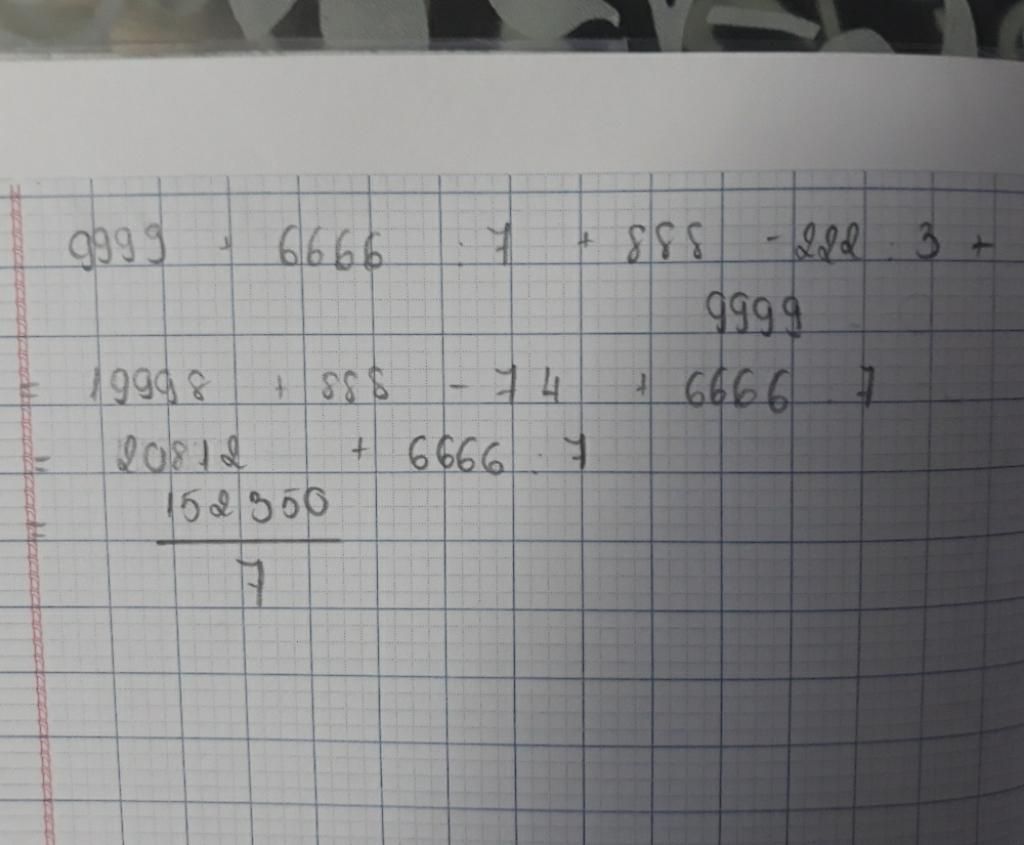 9999 + 6666 : 7 + 888 - 222 : 3 +
9999
= 19998 + 888 - 74 + 6666 : 7
= 20812 + 6666 : 7
= 152350
7